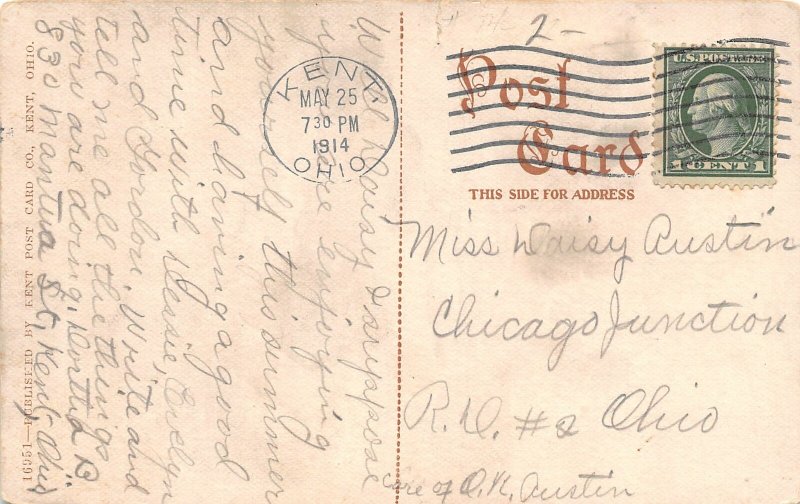 Well Daisy I suppose
you are enjoying
yourself this summer
and having a good
time with Dessie, Evelyn
and Gordon. Write and
tell me all the things
you are doing.
830 Mantua St. Kent Ohio
16951—PUBLISHED BY KENT POST CARD CO., KENT, OHIO.
KENT.
MAY 25
7 30 PM
1914
OHIO
2-
Post
Card
THIS SIDE FOR ADDRESS
U.S. POSTAGE
1 CENT 1
Miss Daisy Austin
Chicago Junction
R.D. #2 Ohio
Care of O.K. Austin